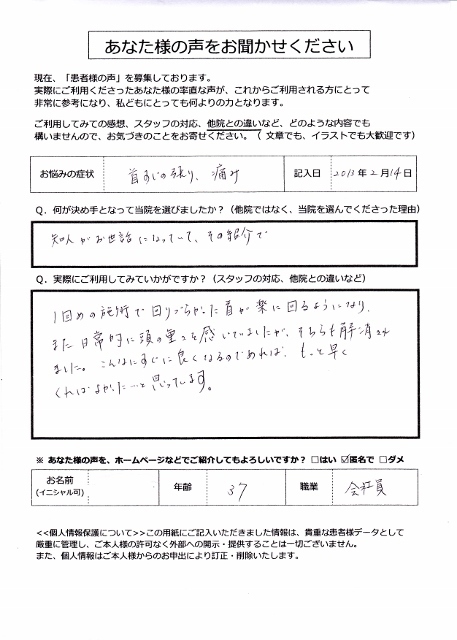 あなた様の声をお聞かせください
現在、「患者様の声」を募集しております。
実際にご利用くださったあなた様の率直な声が、これからご利用される方にとって
非常に参考になり、私どもにとっても何よりの力となります。
ご利用してみての感想、スタッフの対応、他院との違いなど、どのような内容でも
構いませんので、お気づきのことをお寄せください。（ 文章でも、イラストでも大歓迎です）
お悩みの症状 首すじの張り、痛み 記入日 2013年2月14日
Q．何が決め手となって当院を選びましたか？（他院ではなく、当院を選んでくださった理由）
知人がお世話になっていて、その紹介で
Q．実際にご利用してみていかがですか？（スタッフの対応、他院との違いなど）
1回めの施術で回りづらかった首が楽に回るようになり、
また日常的に頭の重さを感じていましたが、そちらも解消され
ました。こんなにすぐに良くなるのであれば、もっと早く
くればよかった…と思っています。
※ あなた様の声を、ホームページなどでご紹介してもよろしいですか？ □はい ☑匿名で □ダメ
お名前
(イニシャル可) 年齢 37 職業 会社員
<<個人情報保護について>>この用紙にご記入いただきました情報は、貴重な患者様データとして
厳重に管理し、ご本人様の許可なく外部への開示・提供することは一切ございません。
また、個人情報はご本人様からのお申出により訂正・削除いたします。